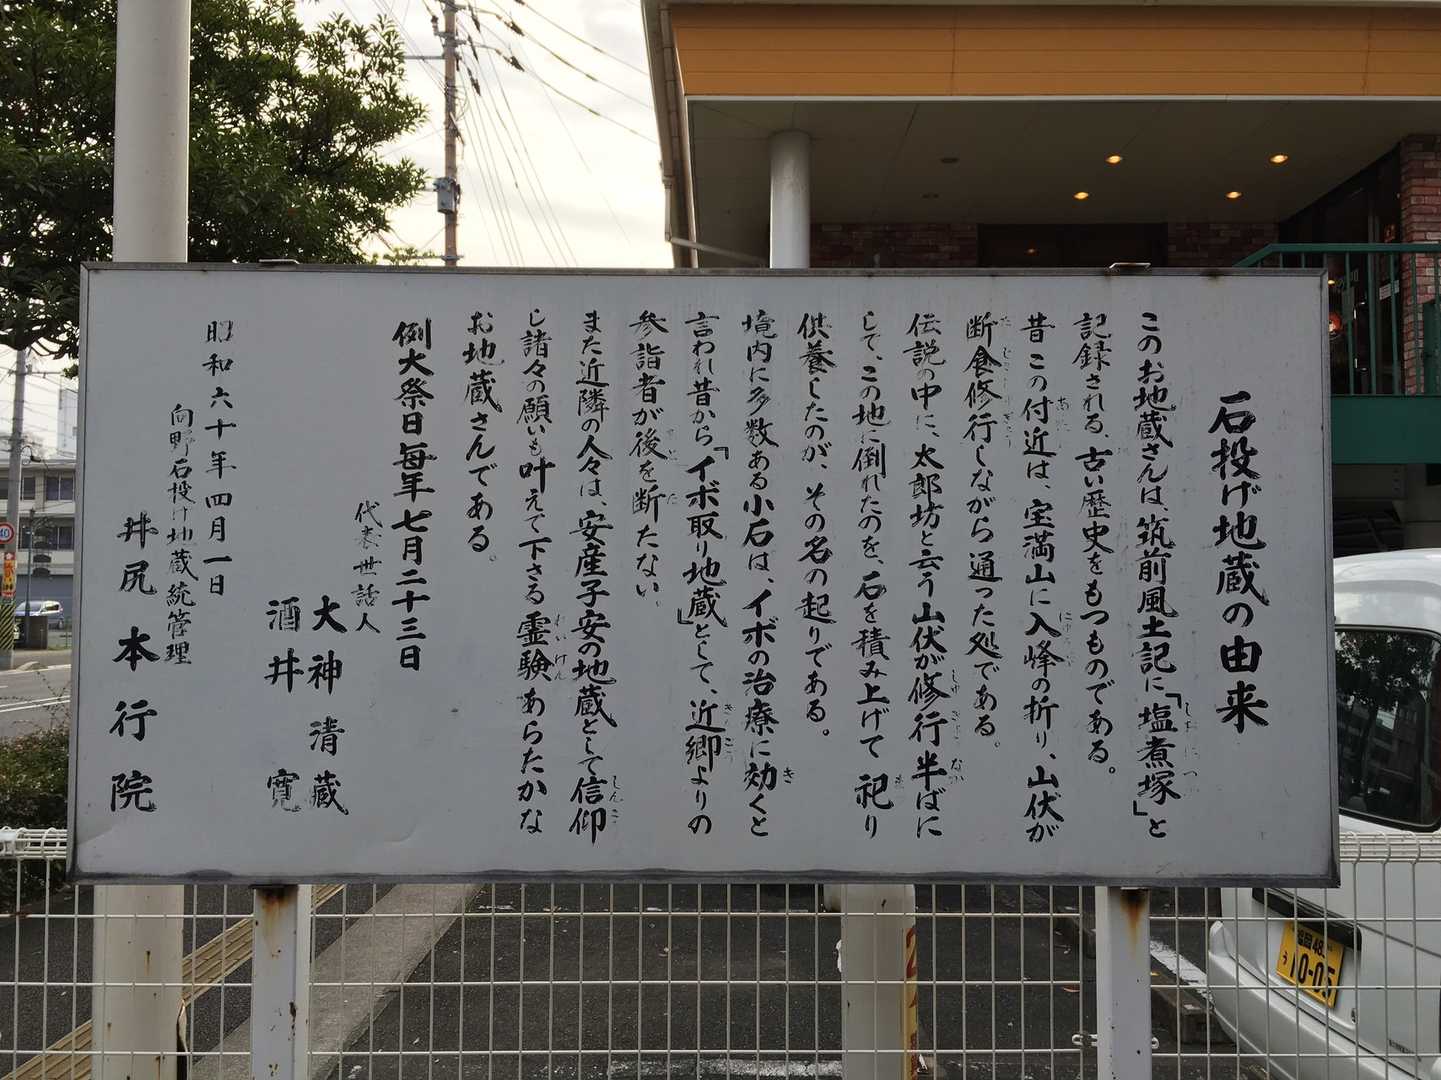 石投げ地蔵の由来
このお地蔵さんは、筑前風土記に「塩煮塚」と
記録される、古い歴史をもつものである。
昔この付近は、宝満山に入峰の折り、山伏が
断食修行しながら通った処である。
伝説の中に、太郎坊と云う山伏が修行半ばに
して、この地に倒れたのを、石を積み上げて祀り
供養したのが、その名の起りである。
境内に多数ある小石は、イボの治療に効くと
言われ昔から「イボ取り地蔵」として、近郷よりの
参詣者が後を断たない。
また近隣の人々は、安産子安の地蔵として信仰
し諸々の願いも叶えて下さる霊験あらたかな
お地蔵さんである。
例大祭日毎年七月二十三日
代表世話人
大神清蔵
酒井寛
昭和六十年四月一日
向野石投げ地蔵統管理
井尻本行院
40
10-05